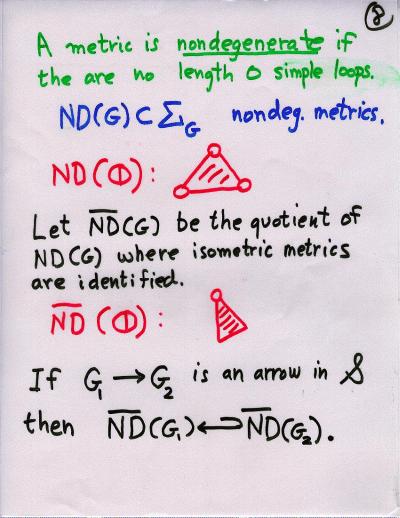 8
A metric is nondegenerate if
the are no length 0 simple loops.
ND(G) ⊂ Σ_G nondeg. metrics.
ND(Φ):
Let N̅D̅(G) be the quotient of
ND(G) where isometric metrics
are identified.
N̅D̅(Φ):
If G₁ → G₂ is an arrow in S
then N̅D̅(G₁) ↩ N̅D̅(G₂).